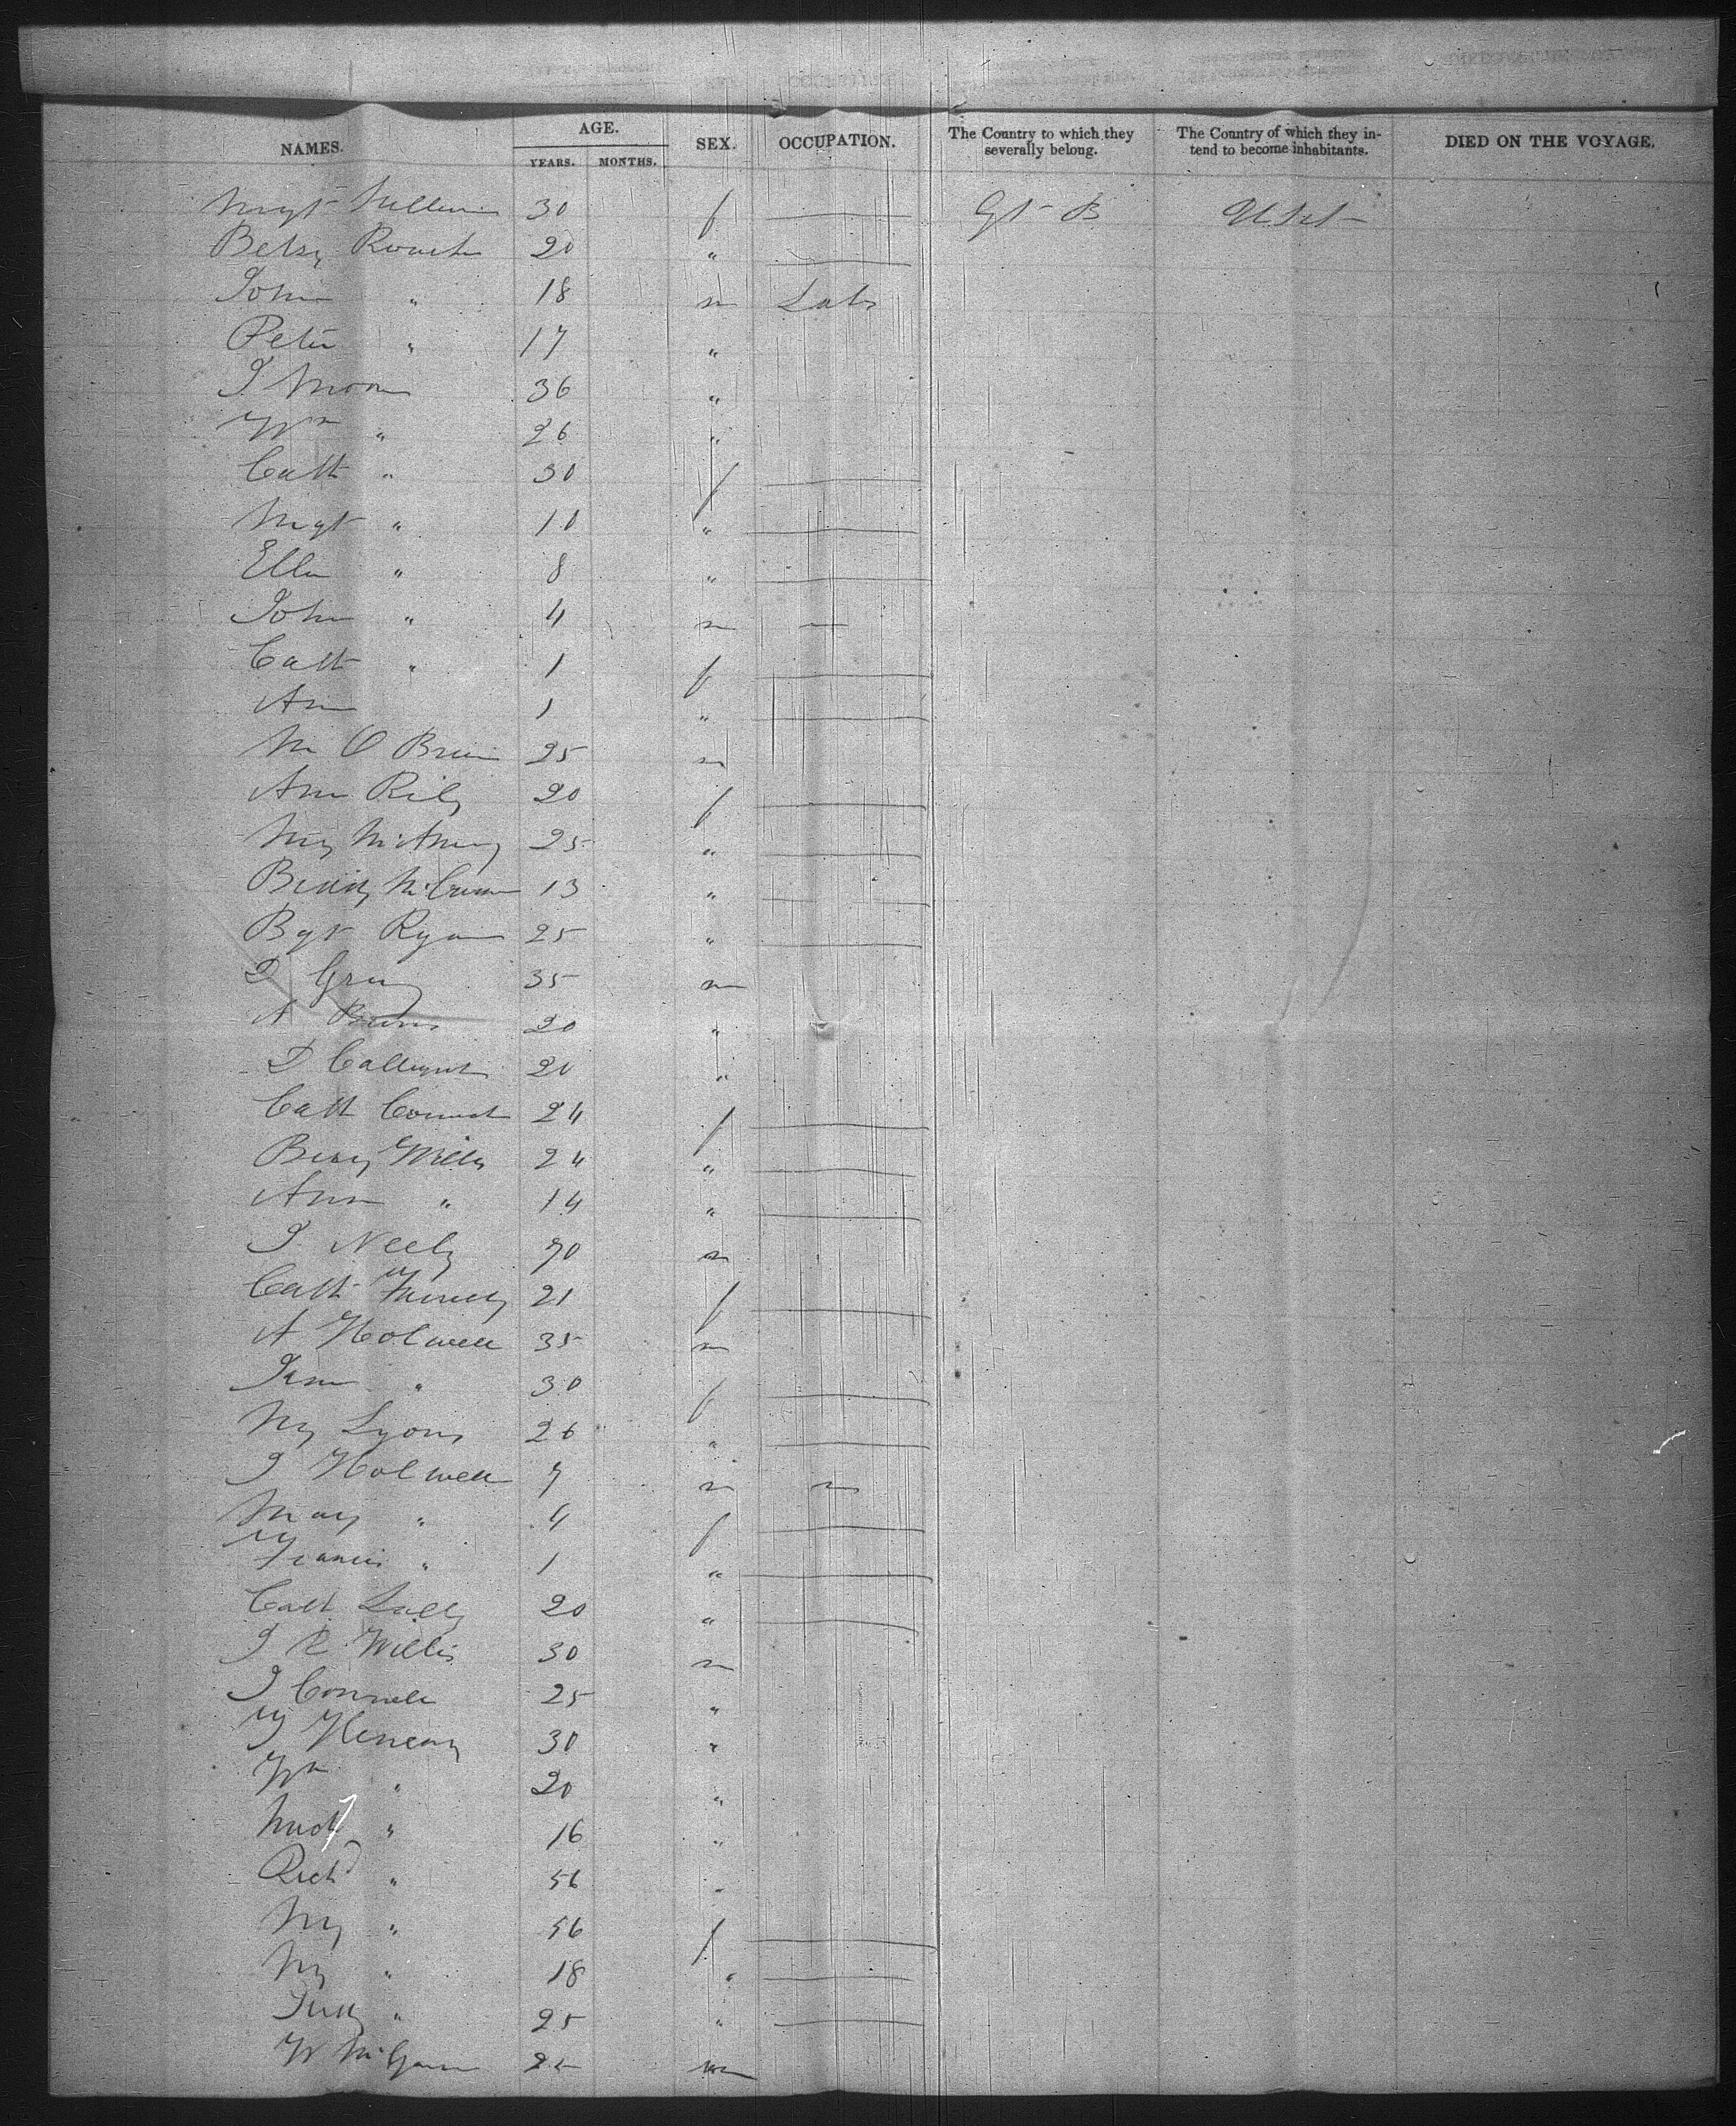 NAMES. AGE. SEX. OCCUPATION. The Country to which they severally belong. The Country of which they intend to become inhabitants. DIED ON THE VOYAGE.
YEARS. MONTHS.
Mgt Sullivan 30 f — Gt B U St
Betsy Roach 20 " —
John " 18 m Labr
Peter " 17 "
J Moor 36 "
Wm " 26 "
Cath " 30 f —
Mgt " 10 " —
Ellen " 8 " —
John " 4 m —
Cath " 1 f —
Ann 1 " —
M O Brien 25 m
Ann Rily 20 f —
My 25 " —
Biddy 13 " —
Bgt Ryan 25 " —
35 m
A Burns 20 "
20 "
Cath 24 f —
24 " —
Ann " 14 " —
J Neely 70 m
Cath 21 f —
A Holwell 35 m
Jane " 30 f —
My Lyons 26 " —
J Holwell 7 m —
Mary " 4 f —
Francis " 1 " —
Cath Lally 20 " —
J R Willis 30 m
J Connell 25 "
30 "
Wm " 20 "
Mich " 16 "
Richd " 56 "
My " 56 f —
My " 18 " —
" 25 " —
W 25 m